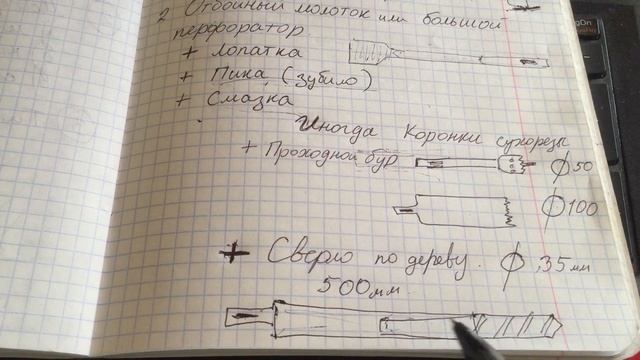 2 Отбойный молоток или большой
перфоратор
+ Лопатка
+ Пика (зубило)
+ Смазка
Иногда Коронки сухорезы
+ Проходной бур
Ф50
Ф100
+ Сверло по дереву. Ф 35мм
500мм